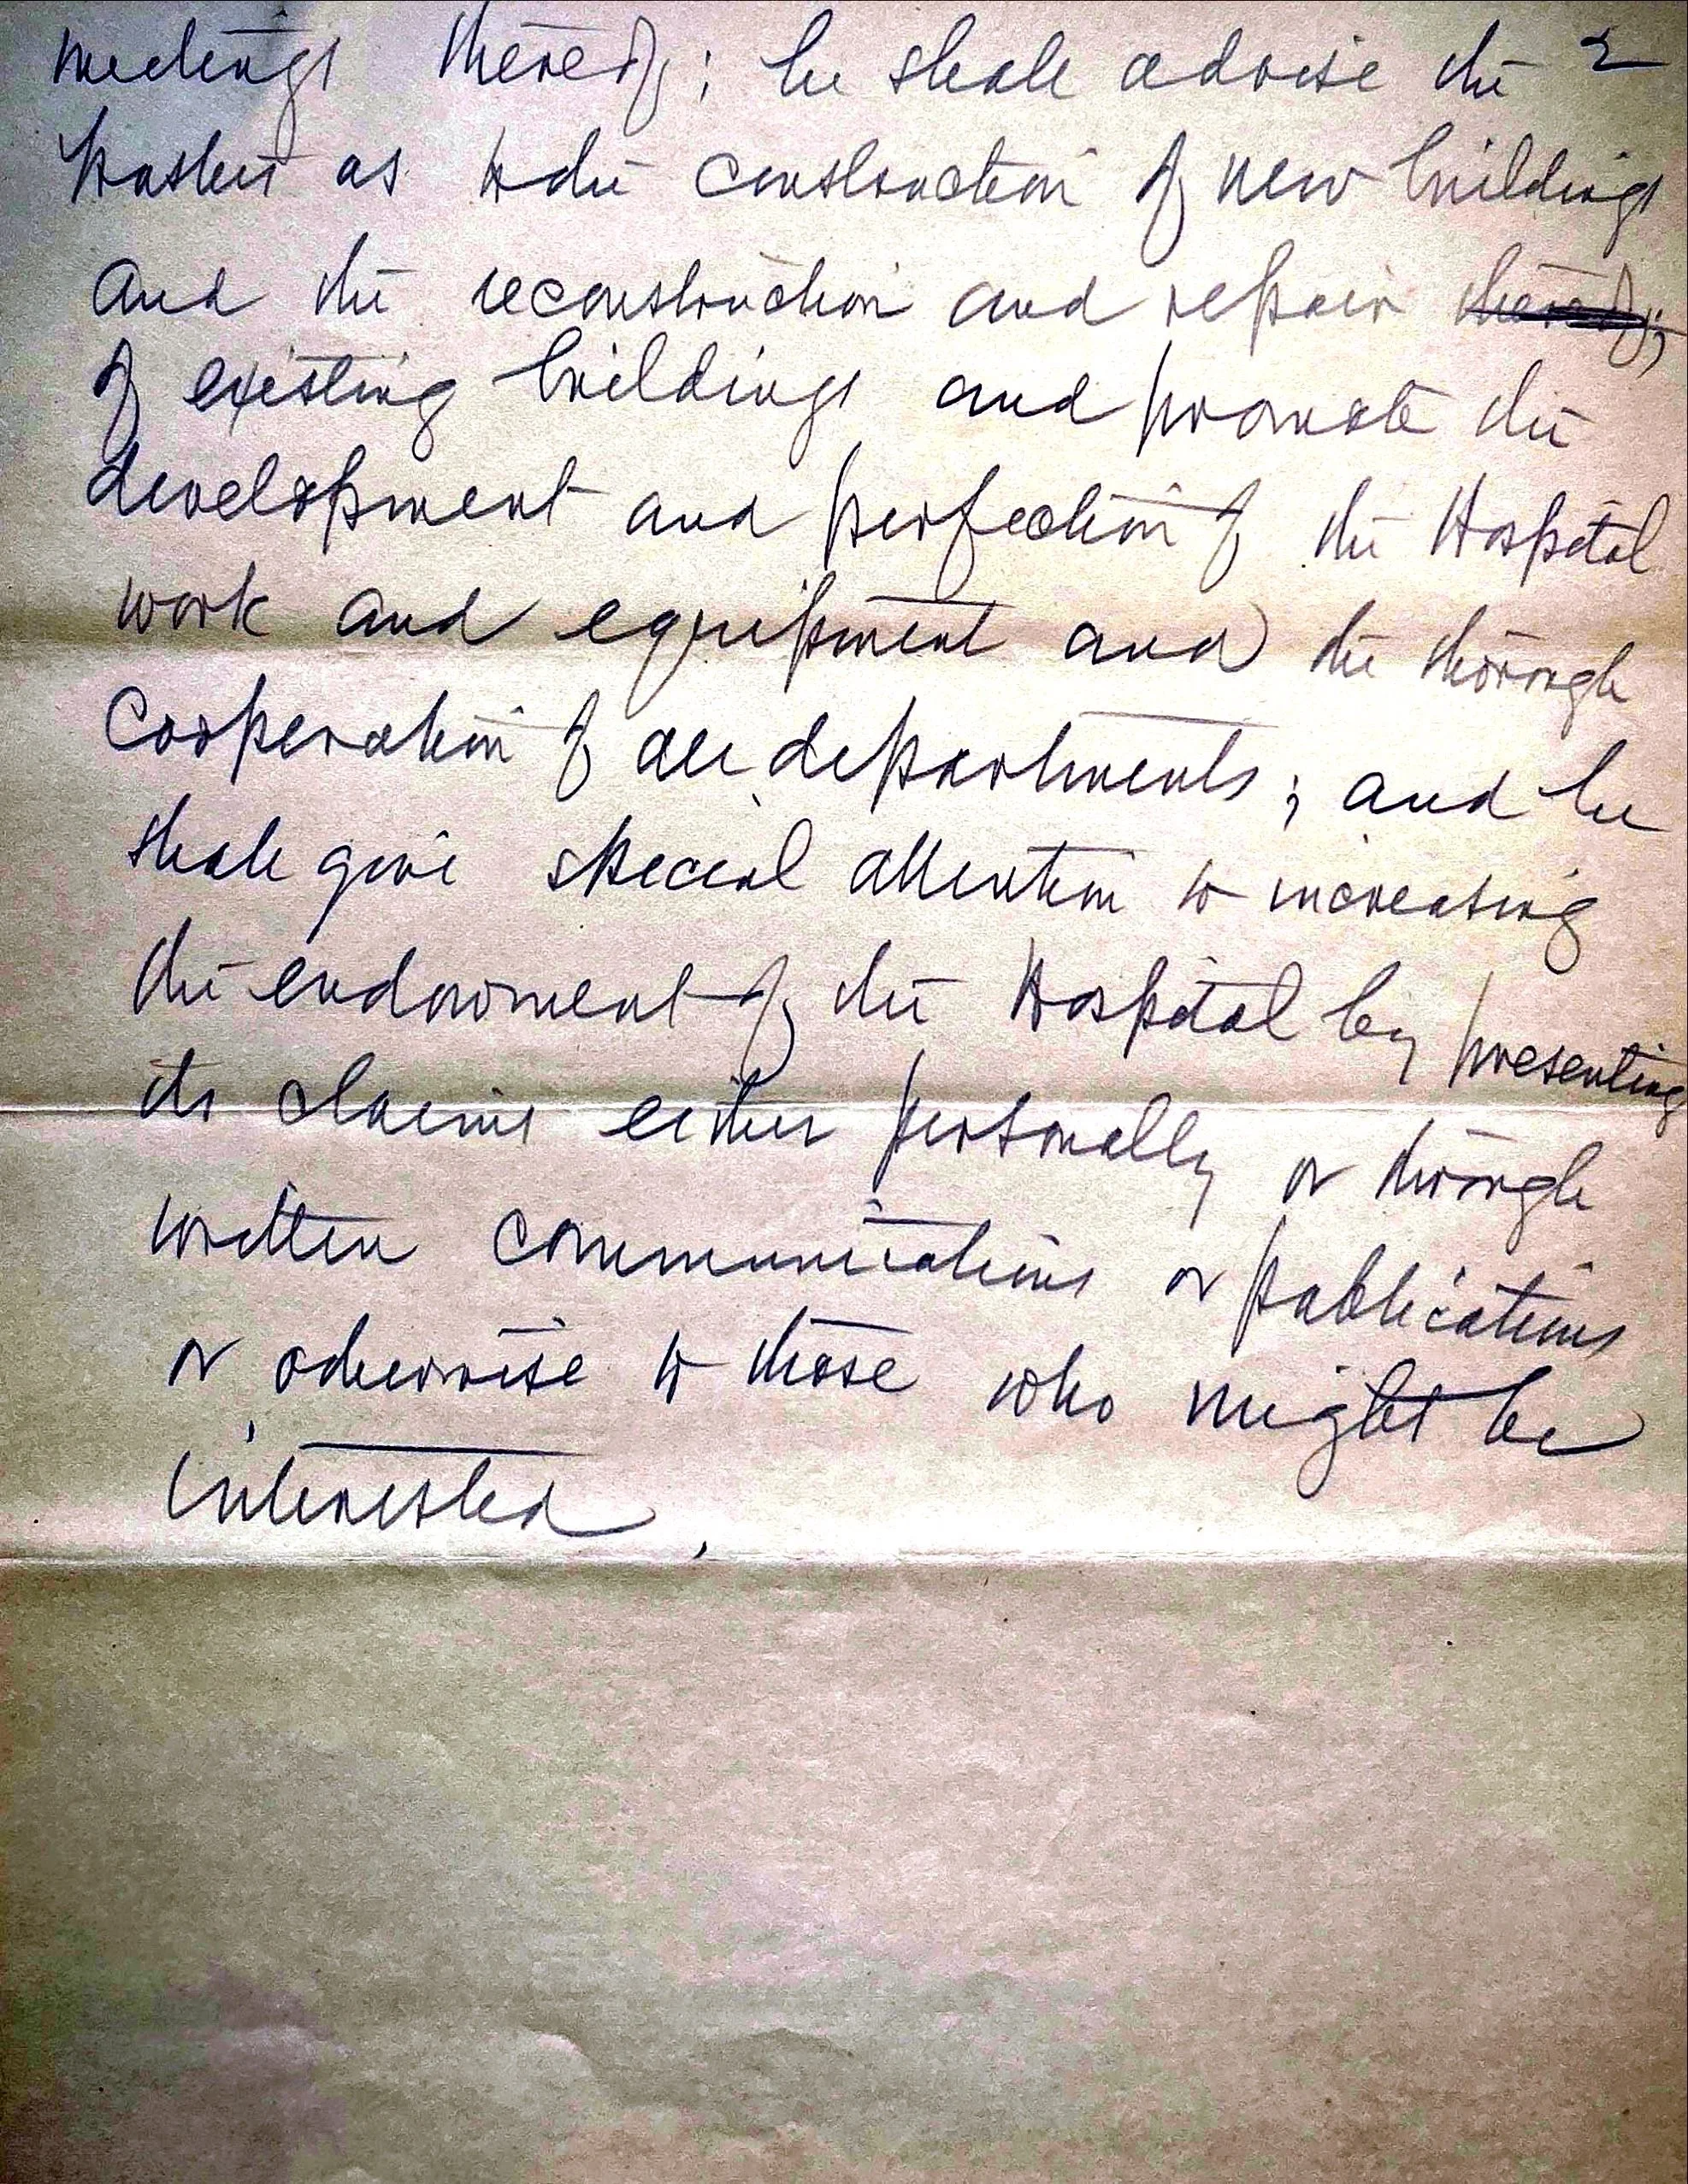 meetings thereof; he shall advise the 2
as to the construction of new buildings
and the reconstruction and repair thereof;
of existing buildings and promote the
development and perfection of the Hospital
work and equipment and the thorough
cooperation of all departments; and he
shall give special attention to increasing
the endowment of the Hospital by presenting
its claims either personally or through
written communications or publications
or otherwise to those who might be
interested.